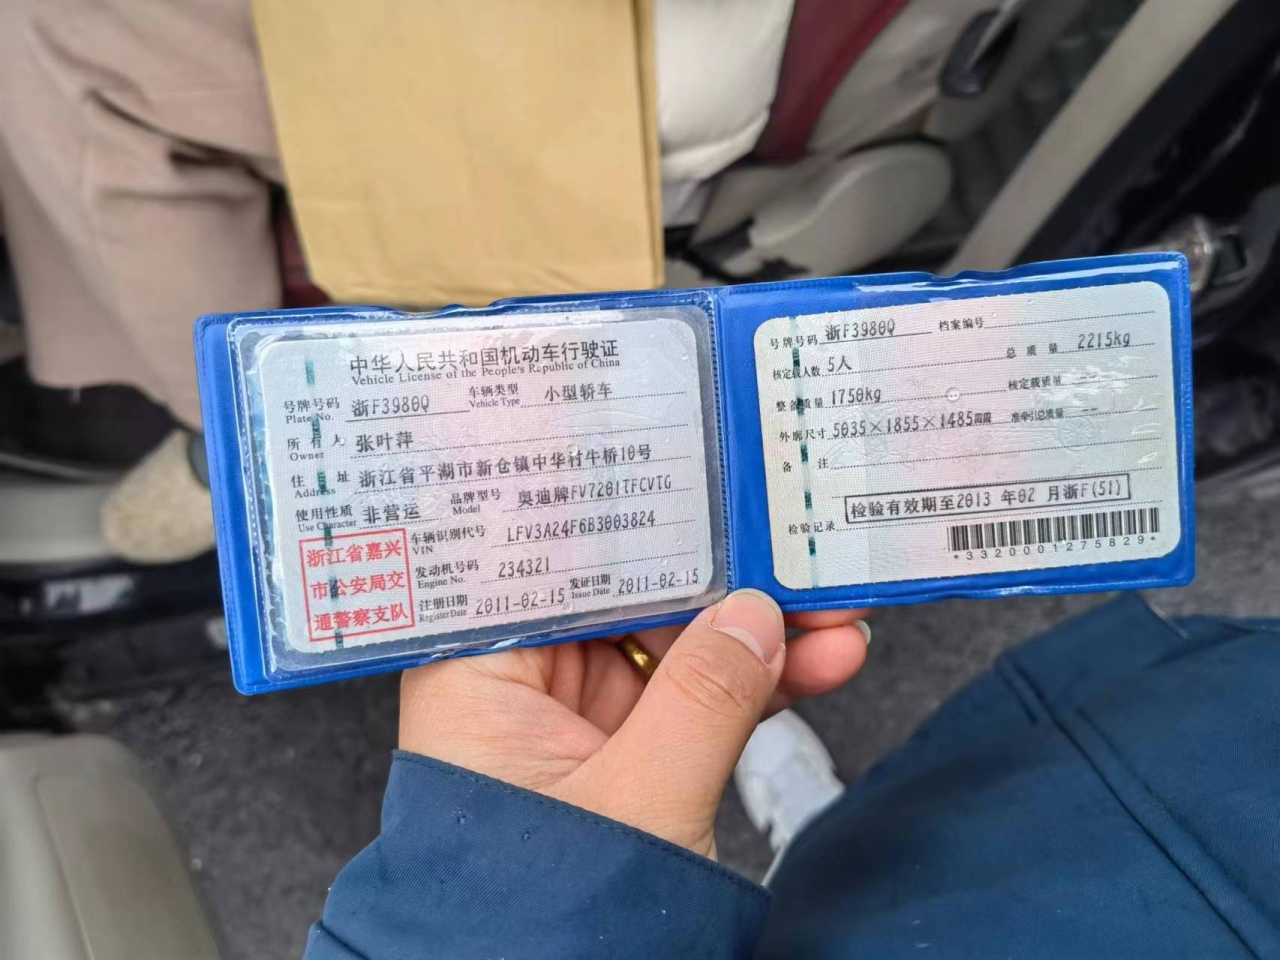 中华人民共和国机动车行驶证
Vehicle License of the People's Republic of China
号牌号码 Plate No. 浙F3980Q 车辆类型 Vehicle Type 小型轿车
所有人 Owner 张叶萍
住址 Address 浙江省平湖市新仓镇中华村牛桥10号
使用性质 Use Character 非营运 品牌型号 Model 奥迪牌FV7201TFCVTG
车辆识别代号 VIN LFV3A24F6B3003824
发动机号码 Engine No. 234321
注册日期 Register Date 2011-02-15 发证日期 Issue Date 2011-02-15
浙江省嘉兴
市公安局交
通警察支队
号牌号码 浙F3980Q 档案编号
核定载人数 5人 总质量 2215kg
整备质量 1750kg 核定载质量 --
外廓尺寸 5035×1855×1485mm 准牵引总质量 --
备注
检验记录 检验有效期至2013 年02 月浙F(51)
*3320001275829*